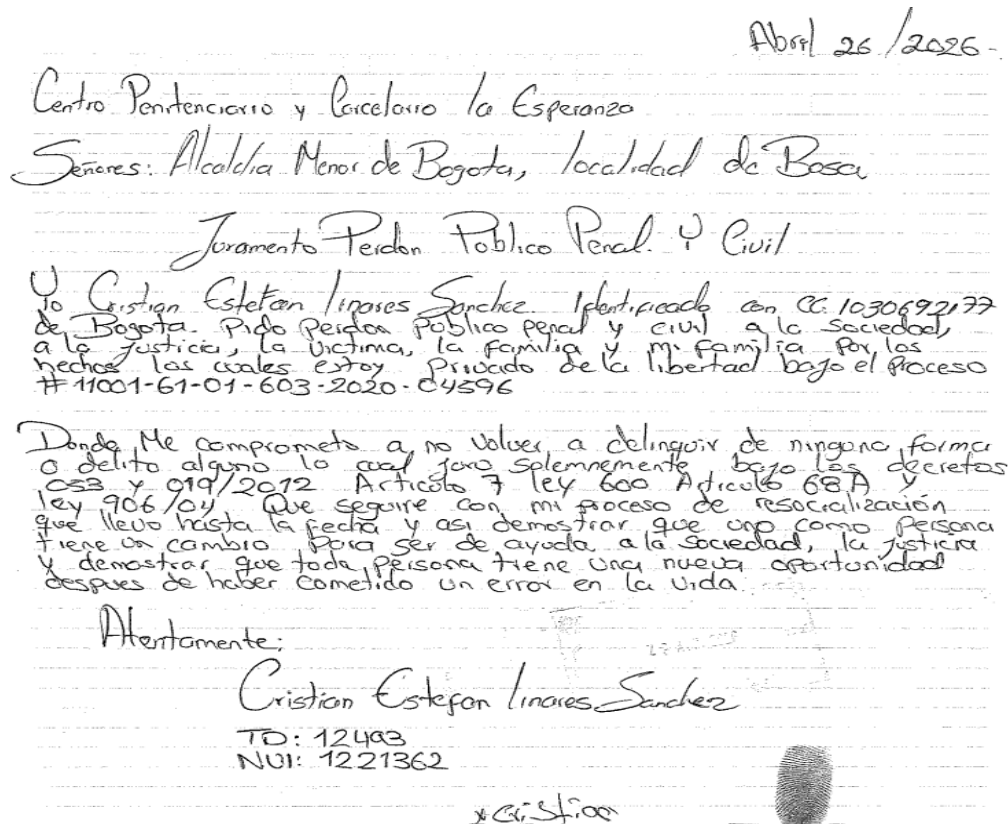 Abril 26/2026-
Centro Penitenciario y Carcelario la Esperanza
Señores: Alcaldia Menor de Bogota, localidad de Bosa
Juramento Perdon Publico Penal. Y Civil
Yo Cristian Estefan linares Sanchez. Identificado con CC. 1030692177
de Bogota. Pido Perdon Publico penal y civil a la Sociedad,
a la justicia, la victima, la familia y mi familia Por los
hechos los cuales estoy Privado de la libertad bajo el Proceso
# 11001-61-01-603-2020-04596
Donde Me comprometo a no volver a delinquir de ninguna forma
o delito alguno lo cual juro Solemnemente bajo los decretos
053 y 019/2012 Articulo 7 ley 600 Articulo 68A y
ley 906/04 Que seguire con mi proceso de resocialización
que llevo hasta la fecha y asi demostrar que uno como Persona
tiene un cambio Para ser de ayuda a la Sociedad, la justicia
y demostrar que toda Persona tiene una nueva oportunidad
despues de haber cometido un error en la vida
Atentamente:
Cristian Estefan linares Sanchez
TD: 12493
NUI: 1221362
x Cristian